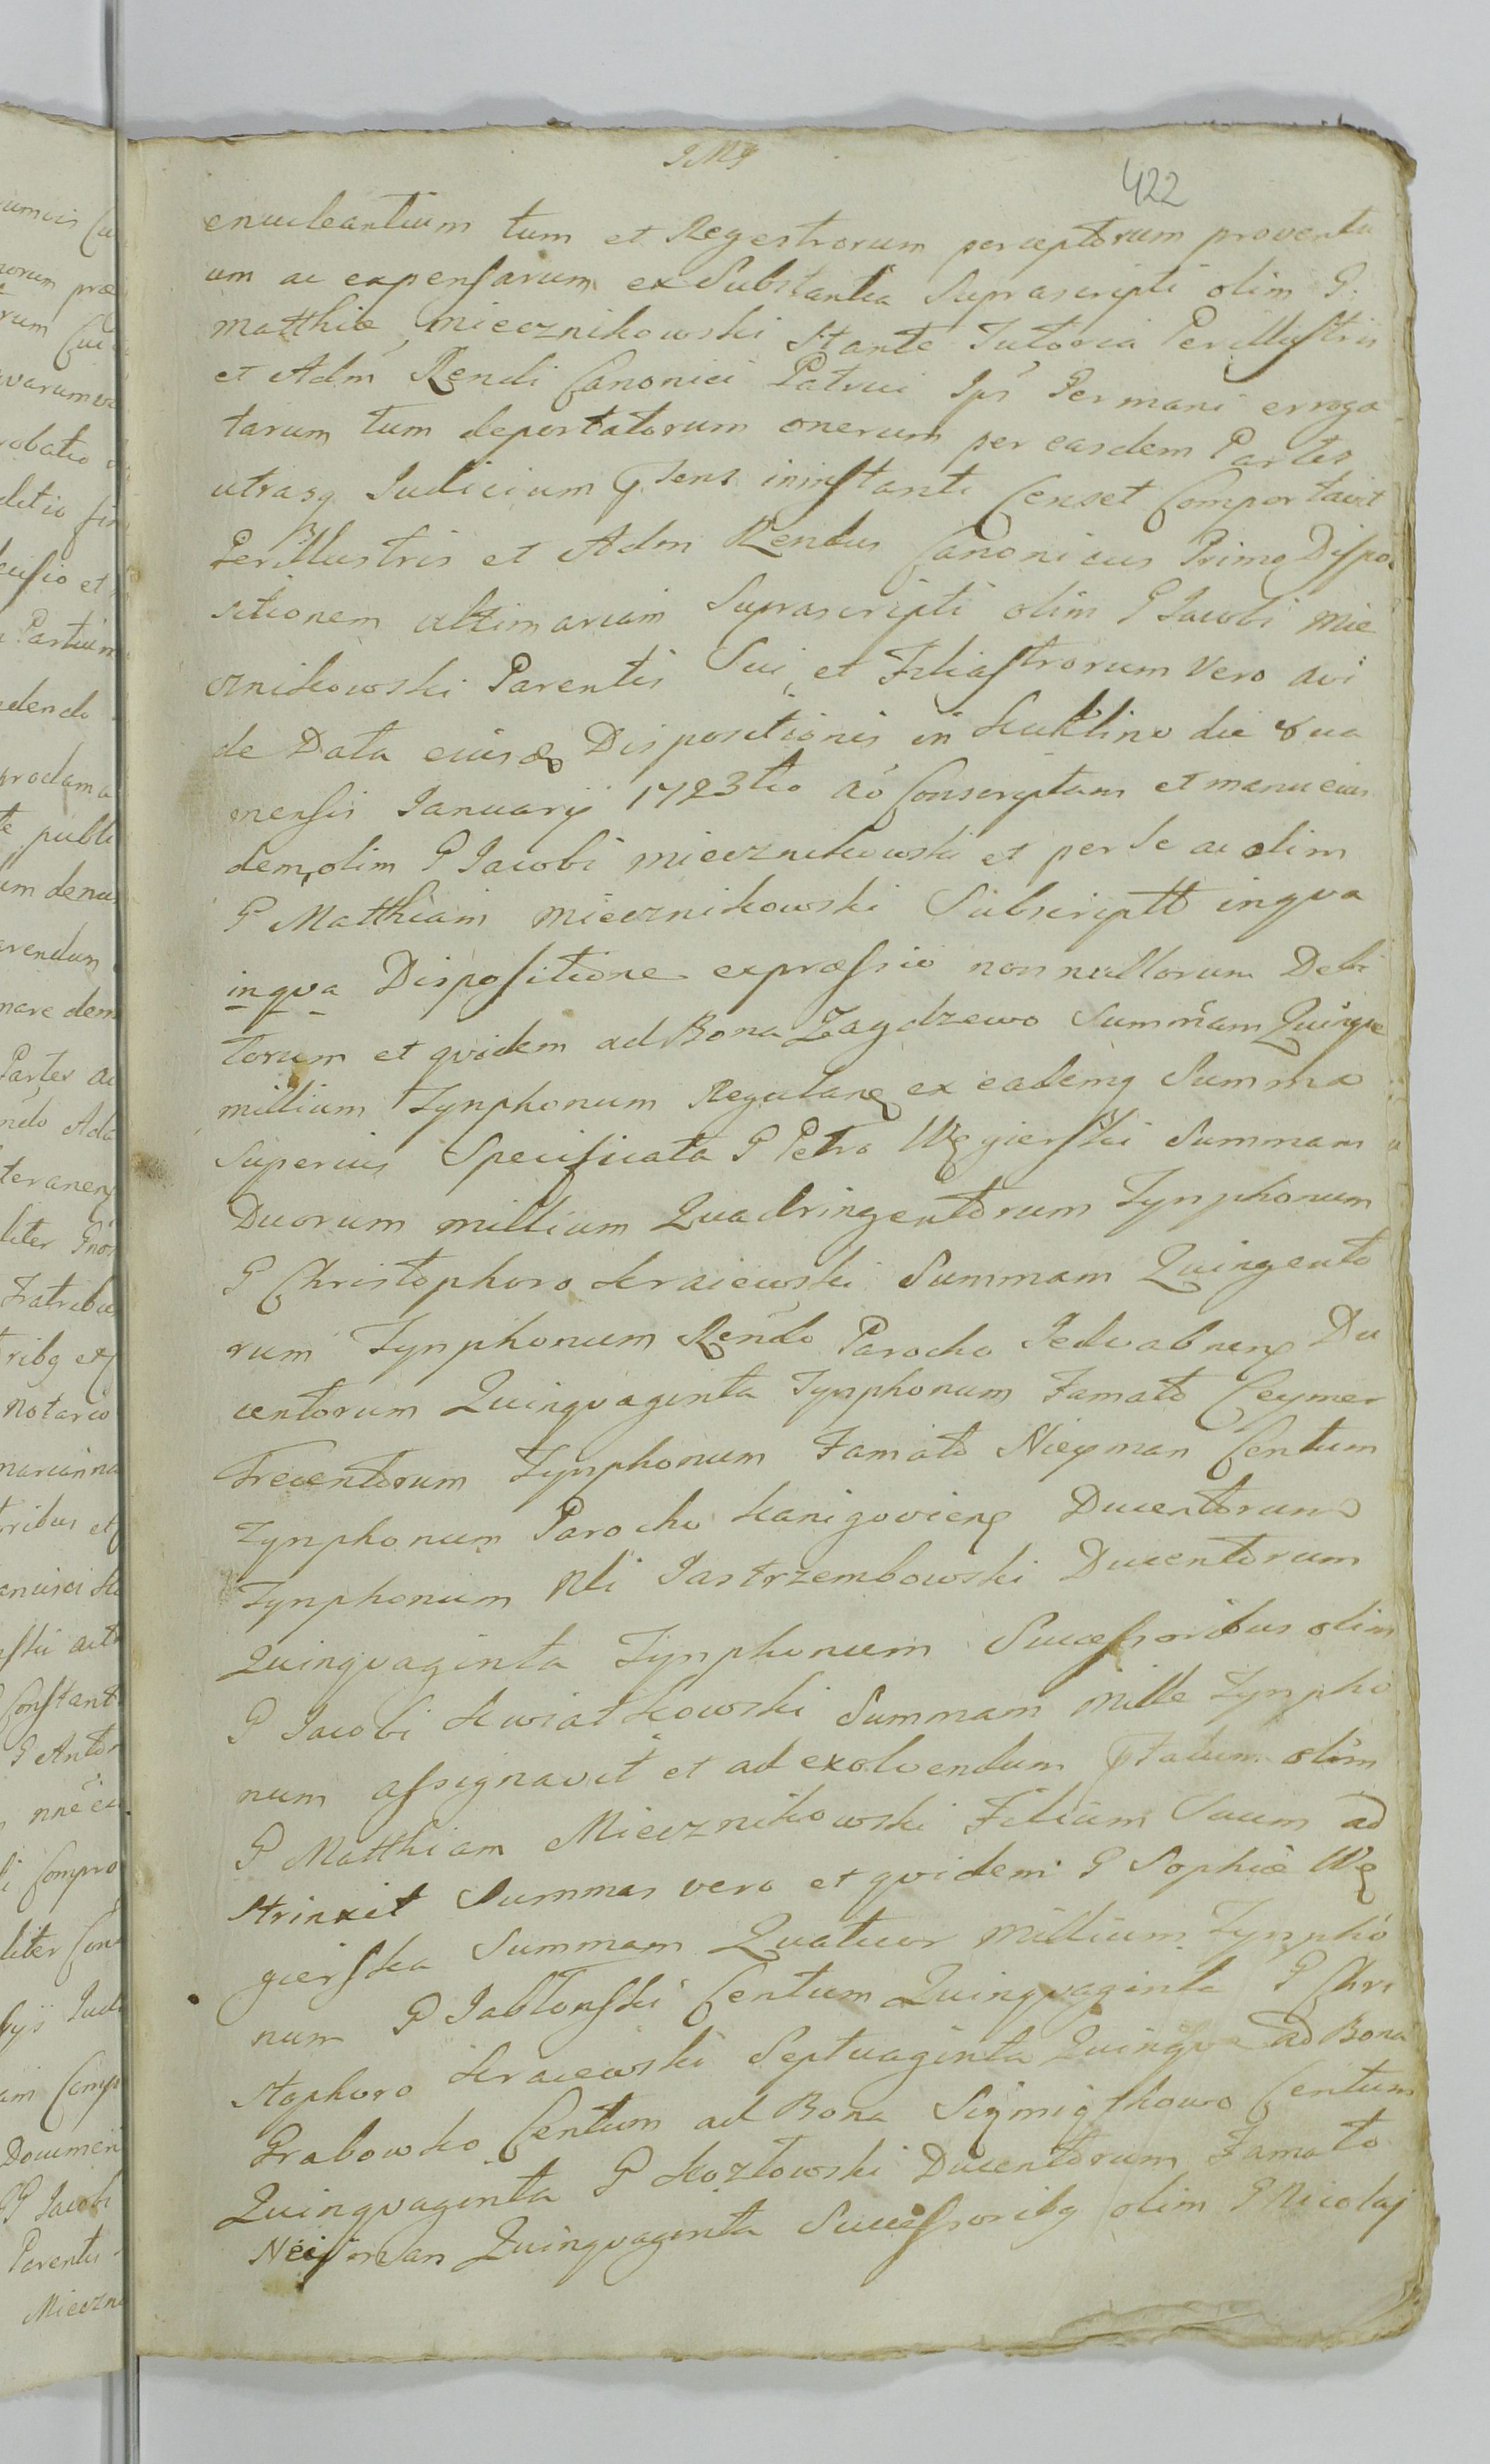 JMJ
422
enucleantium tum et Regestrorum perceptorum proventu
um ac expensarum ex Substantia Suprascripti olim G.
Matthiæ Miecznikowski Stante Tutoria Perillustris
et Adm Rendi Canonici Patrui Ips Germani erroga
tarum tum deportatorum onerum per easdem Partes
utrasq Iudicium in instanti Censet Comportavit
Perillustris et Adm Rendus Canonicus Primo Dispo
sitionem ultimariam Suprascripti olim G Iacobi Mie
cznikowski Parentis Sui, et Filiastrorum Vero avi
de Data eiusd Dispositionis in Kuklino die 8va
mensis Ianuarij 1723tio Ao Conscriptam et manu eius
dem olim G Iacobi Miecznikowski et per Se ac olim
G Matthiam Miecznikowski Subscriptt inqva
inqva Dispositione expræssio non nullorum Debi
torum et qvidem ad Bona Zagdzewo Summam Quinque
millium Tynphonum Regulari ex eademq Summa
Superius Specificata G Petro Węgierski Summam
Duorum millium Quadringentorum Tynphonum
G Christophoro Kraiewski Summam Quingento
rum Tynphonum Rendo Parocho Jedwabnen Du
centorum Quinqvaginta Tynphonum Famato Ceymer
Trecentorum Tynphonum Famato Nieyman Centum
Tynphonum Parocho Kanigovien Ducentorum
Tynphonum Nli Jastrzembowski Ducentorum
Quinqvaginta Tynphonum Successoribus olim
G Iacobi Kwiatkowski Summam Mille Tynpho
num assignavit et ad exolvendum olim
G Matthiam Miecznikowski Filium Suum ad
strinxit Summas vero et qvidem G Sophiæ Wę
gierska Summam Quatuor Millium Tynpho
num G Jabłonski Centum Quinqvaginta G Chri
stophoro Kraiewski Septuaginta Quinqve ad Bona
Grabowko Centum ad Bona Centum
Quinqvaginta G Kozłowski Ducentorum Famato
Neijman Quinqvaginta Successoribq olim G Nicolaj